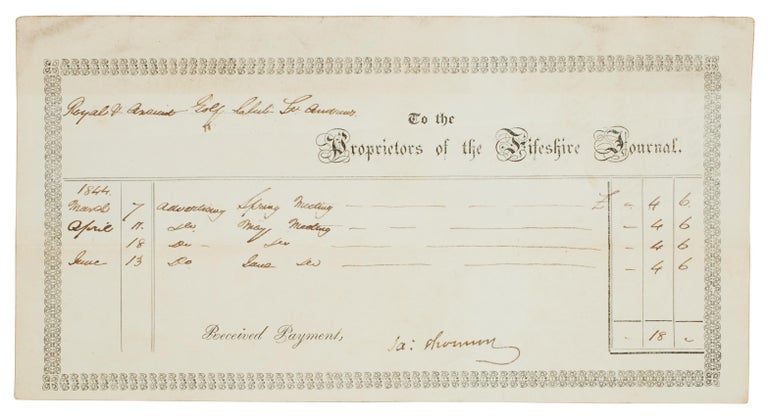 Royal & Ancient Golf Club St Andrews.
To the
Proprietors of the Fifeshire Journal.
1844
March 7 Advertising Spring Meeting £ - 4 6
April 11 Do May Meeting - 4 6
18 Do Do - 4 6
June 13 Do June Do - 4 6
Received Payment,
Ja:
- 18 -